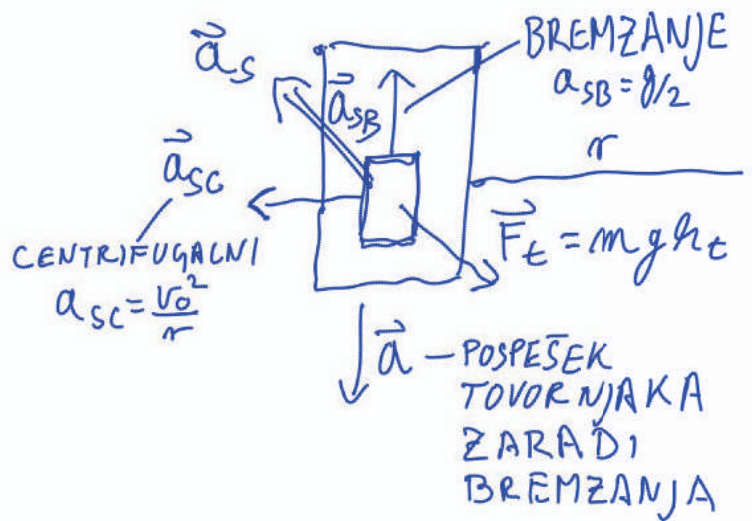 BREMZANJE
a_SB = g/2
a⃗_S
a⃗_SB
r
a⃗_SC
CENTRIFUGALNI
a_SC = v_0^2/r
F⃗_t = m g k_t
a⃗ – POSPEŠEK
TOVORNJAKA
ZARADI
BREMZANJA